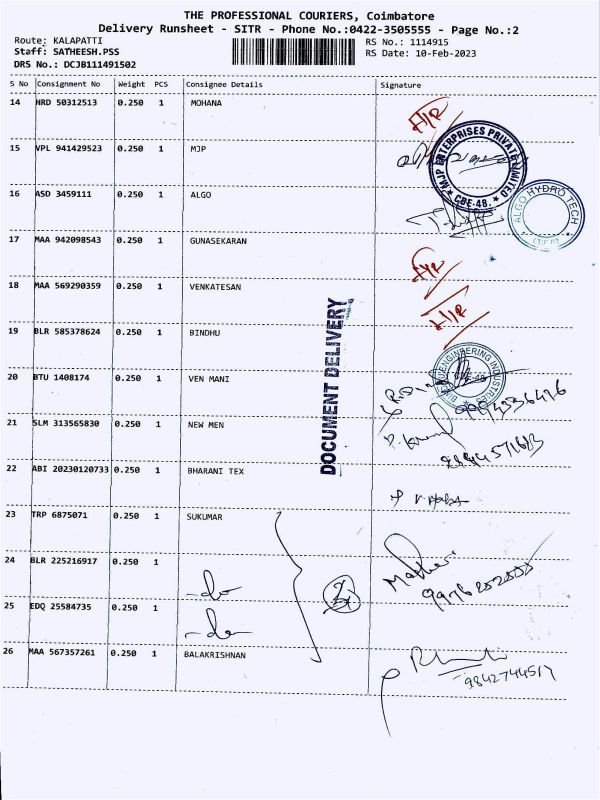 THE PROFESSIONAL COURIERS, Coimbatore
Delivery Runsheet - SITR - Phone No.:0422-3505555 - Page No.:2
Route: KALAPATTI
RS No.: 1114915
Staff: SATHEESH.PSS
RS Date: 10-Feb-2023
DRS No.: DCJB111491502
S No Consignment No Weight PCS Consignee Details Signature
14 HRD 50312513 0.250 1 MOHANA
15 VPL 941429523 0.250 1 MJP
MJP ENTERPRISES PRIVATE LIMITED
★ CBE-48. ★
16 ASD 3459111 0.250 1 ALGO
ALGO HYDRO TECH
17 MAA 942098543 0.250 1 GUNASEKARAN
18 MAA 569290359 0.250 1 VENKATESAN
DOCUMENT DELIVERY
19 BLR 585378624 0.250 1 BINDHU
ENGINEERING INDUSTRIES
CBE-48
20 BTU 1408174 0.250 1 VEN MANI
9994336416
21 SLM 313565830 0.250 1 NEW MEN
22 ABI 20230120733 0.250 1 BHARANI TEX
23 TRP 6875071 0.250 1 SUKUMAR
24 BLR 225216917 0.250 1 -do
25 EDQ 25584735 0.250 1 -do
26 MAA 567357261 0.250 1 BALAKRISHNAN
9842744517